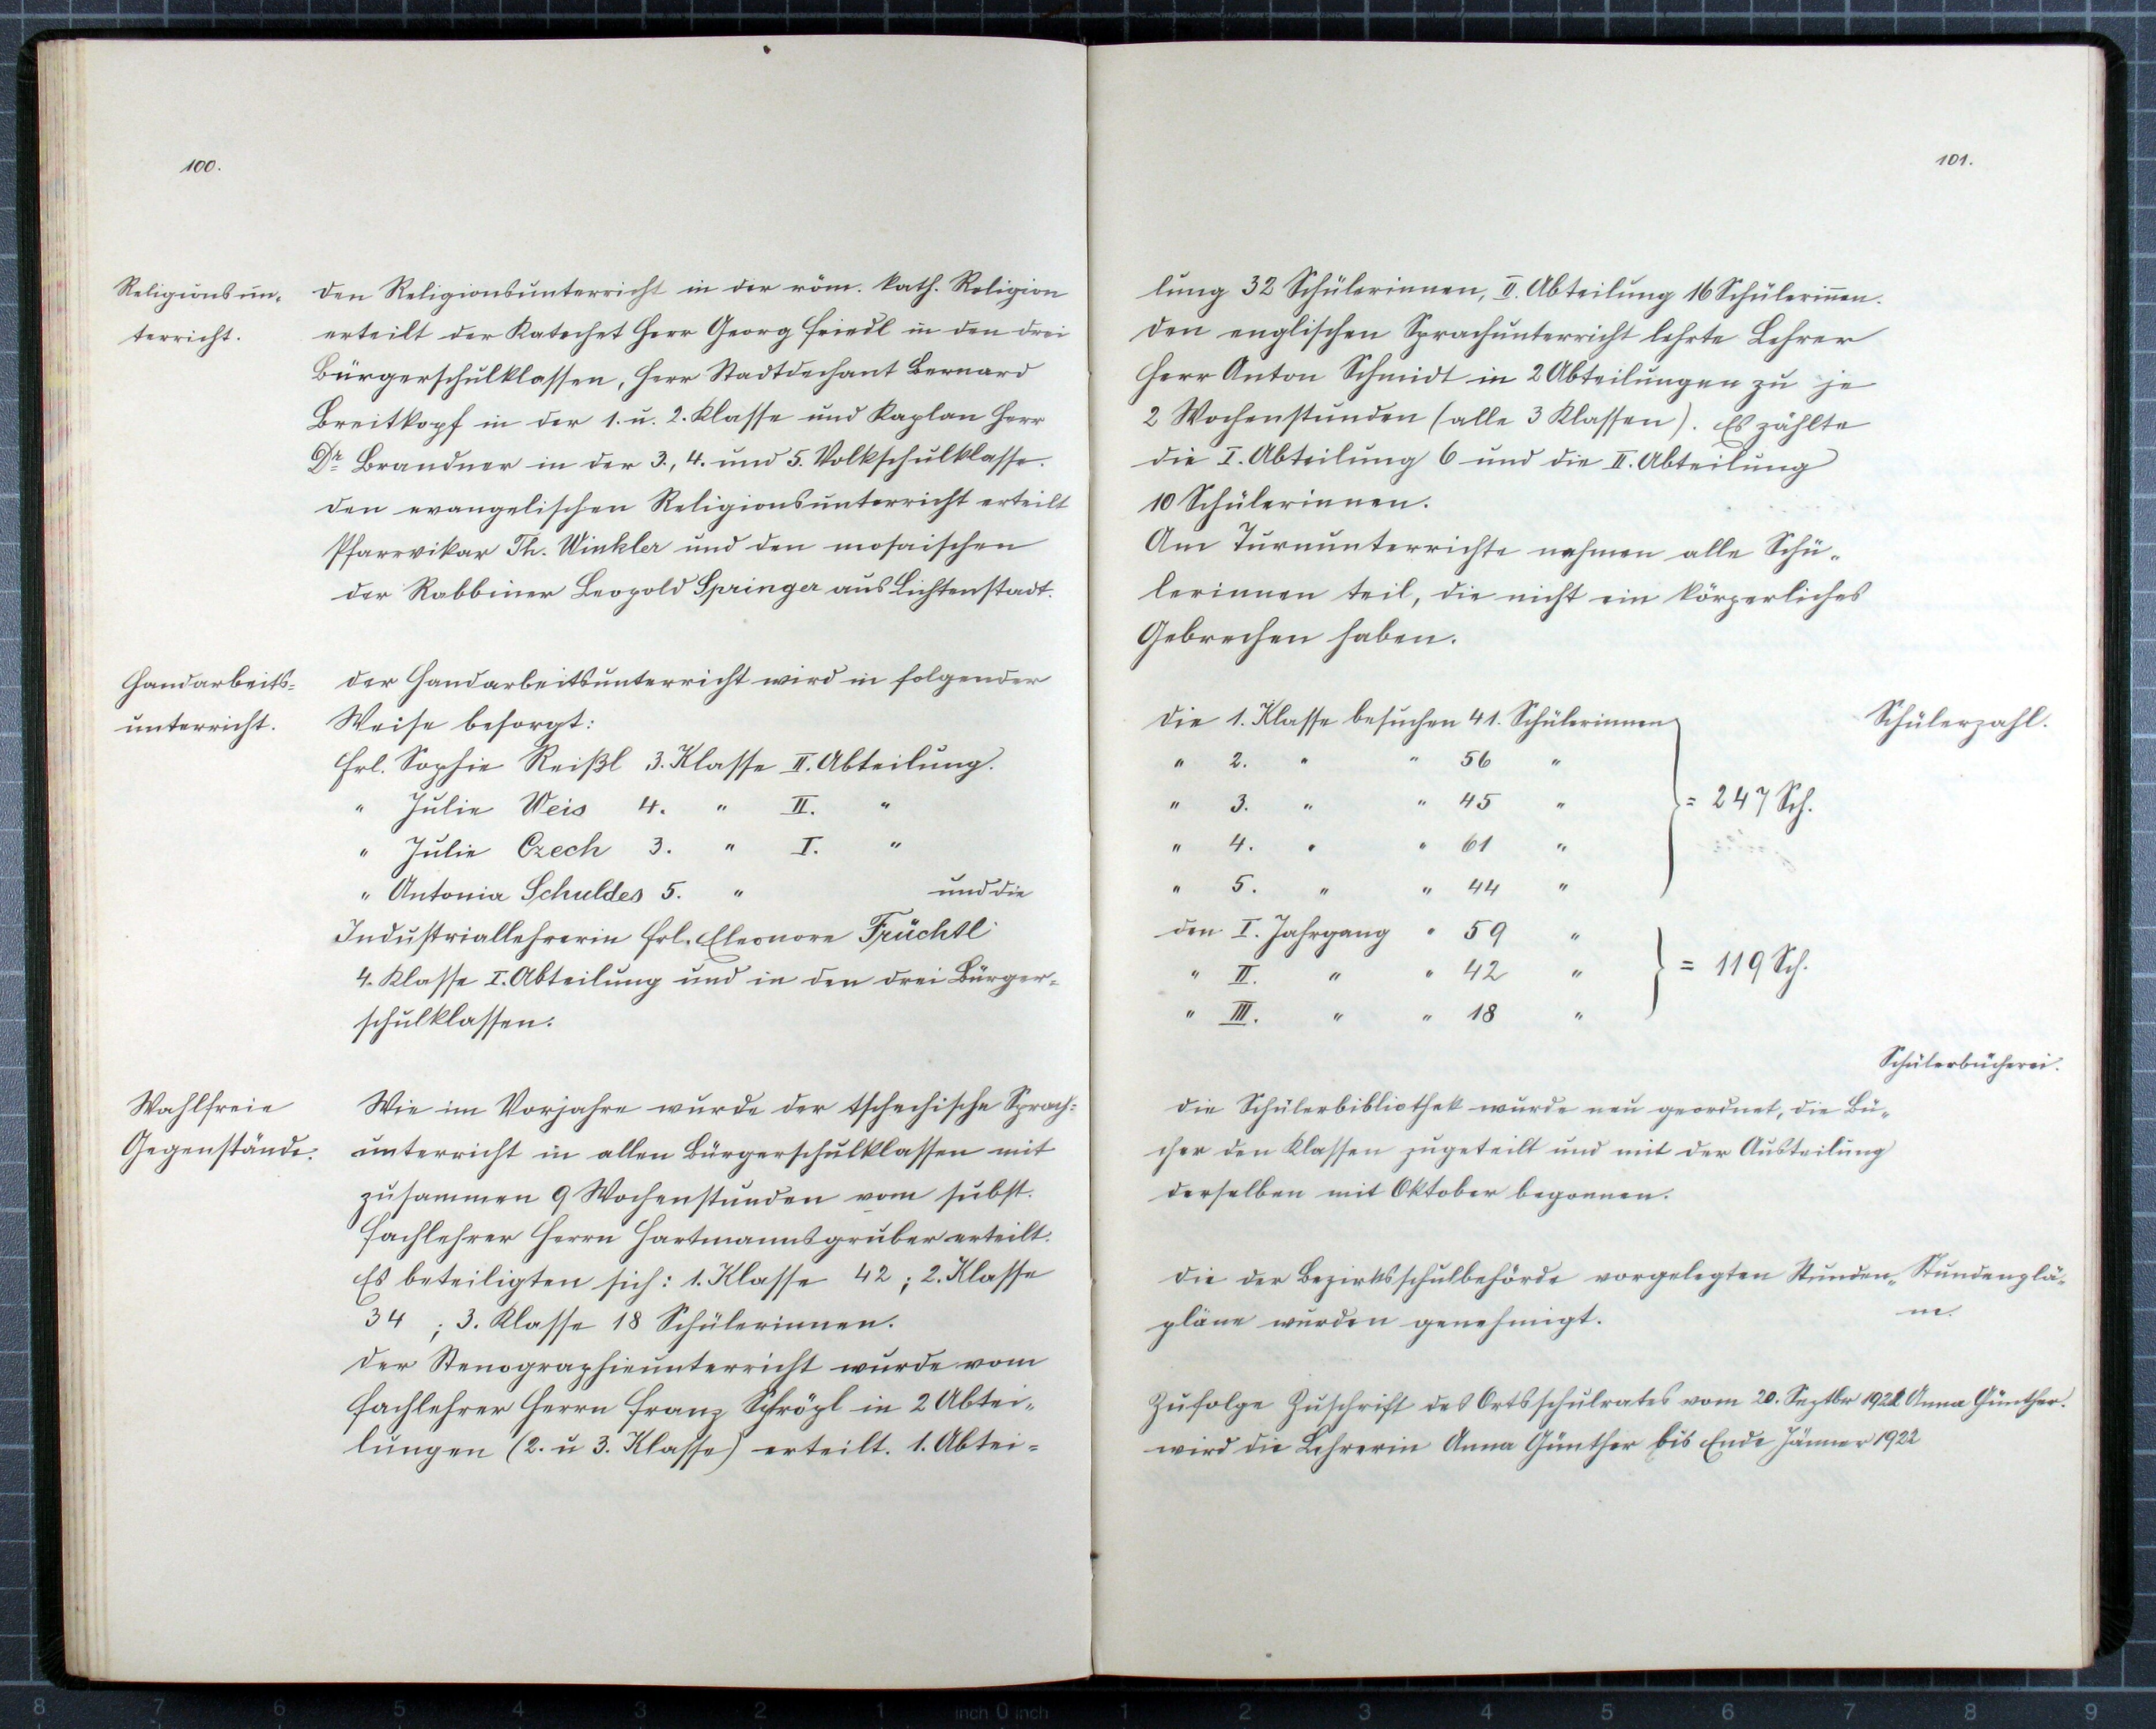 100.
Religionsun-
terricht.
Den Religionsunterricht in der röm. kath. Religion
erteilt der Katechet Herr Georg Friedl in den drei
Bürgerschulklassen, Herr Stadtdechant Bernard
Breitkopf in der 1. u. 2. Klasse und Kaplan Herr
Dr. Brandner in der 3., 4. und 5. Volkschulklasse.
Den evangelischen Religionsunterricht erteilt
Pfarrvikar Th. Winkler und den mosaischen
der Rabbiner Leopold Springer aus Lichtenstadt.
Handarbeits-
unterricht.
Der Handarbeitsunterricht wird in folgender
Weise besorgt:
Frl. Sophie Reißl 3. Klasse II. Abteilung.
" Julie Weis 4. " II. "
" Julie Czech 3. " I. "
" Antonia Schuldes 5. " und die
Industriallehrerin Frl. Eleonore Früchtl
4. Klasse I. Abteilung und in den drei Bürger-
schulklassen.
Wahlfreie
Gegenstände.
Wie im Vorjahre wurde der tschechische Sprach-
unterricht in allen Bürgerschulklassen mit
zusammen 9 Wochenstunden vom subst.
Fachlehrer Herrn Hartmannsgruber erteilt.
Es beteiligten sich: 1. Klasse 42 ; 2. Klasse
34 ; 3. Klasse 18 Schülerinnen.
Der Stenographieunterricht wurde vom
Fachlehrer Herrn Franz Schröpl in 2 Abtei-
lungen (2. u 3. Klasse) erteilt. 1. Abtei-
101.
lung 32 Schülerinnen, II. Abteilung 16 Schülerinen.
Den englischen Sprachunterricht lehrte Lehrer
Herr Anton Schmidt in 2 Abteilungen zu je
2 Wochenstunden (alle 3 Klassen). Es zählte
die I. Abteilung 6 und die II. Abteilung
10 Schülerinnen.
Am Turnunterrichte nahmen alle Schü-
lerinnen teil, die nicht ein körperliches
Gebrechen haben.
Die 1. Klasse besuchen 41. Schülerinnen
Schülerzahl.
" 2. " " 56 "
" 3. " " 45 " = 247 Sch.
" 4. " " 61 "
" 5. " " 44 "
den I. Jahrgang " 59 "
" II. " " 42 " = 119 Sch.
" III. " " 18 "
Schülerbücherei.
Die Schülerbibliothek wurde neu geordnet, die Bü-
cher den Klassen zugeteilt und mit der Austeilung
derselben mit Oktober begonnen.
Die der Bezirksschulbehörde vorgelegten Stunden-
pläne wurden genehmigt.
Stundenplä-
ne.
Zufolge Zuschrift des Ortsschulrates vom 20. Septbr 1921
Anna Günther.
wird die Lehrerin Anna Günther bis Ende Jänner 1922
8 7 6 5 4 3 2 1 inch 0 inch 1 2 3 4 5 6 7 8 9